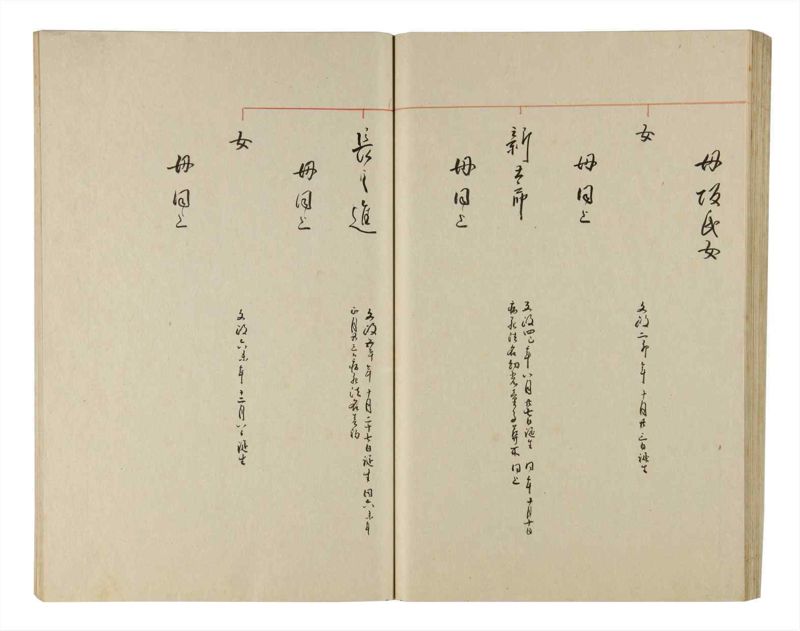 母坂氏女
女
文政二卯年十月廿三日誕生
母同上
新五郎
文政四巳年八月廿七日誕生 同年十月十日
病死法名幻光童子葬所同上
母同上
長之進
文政五午年十月二十七日誕生 同六未年
正月廿三日病死法名
母同上
女
文政六未年十二月八日誕生
母同上